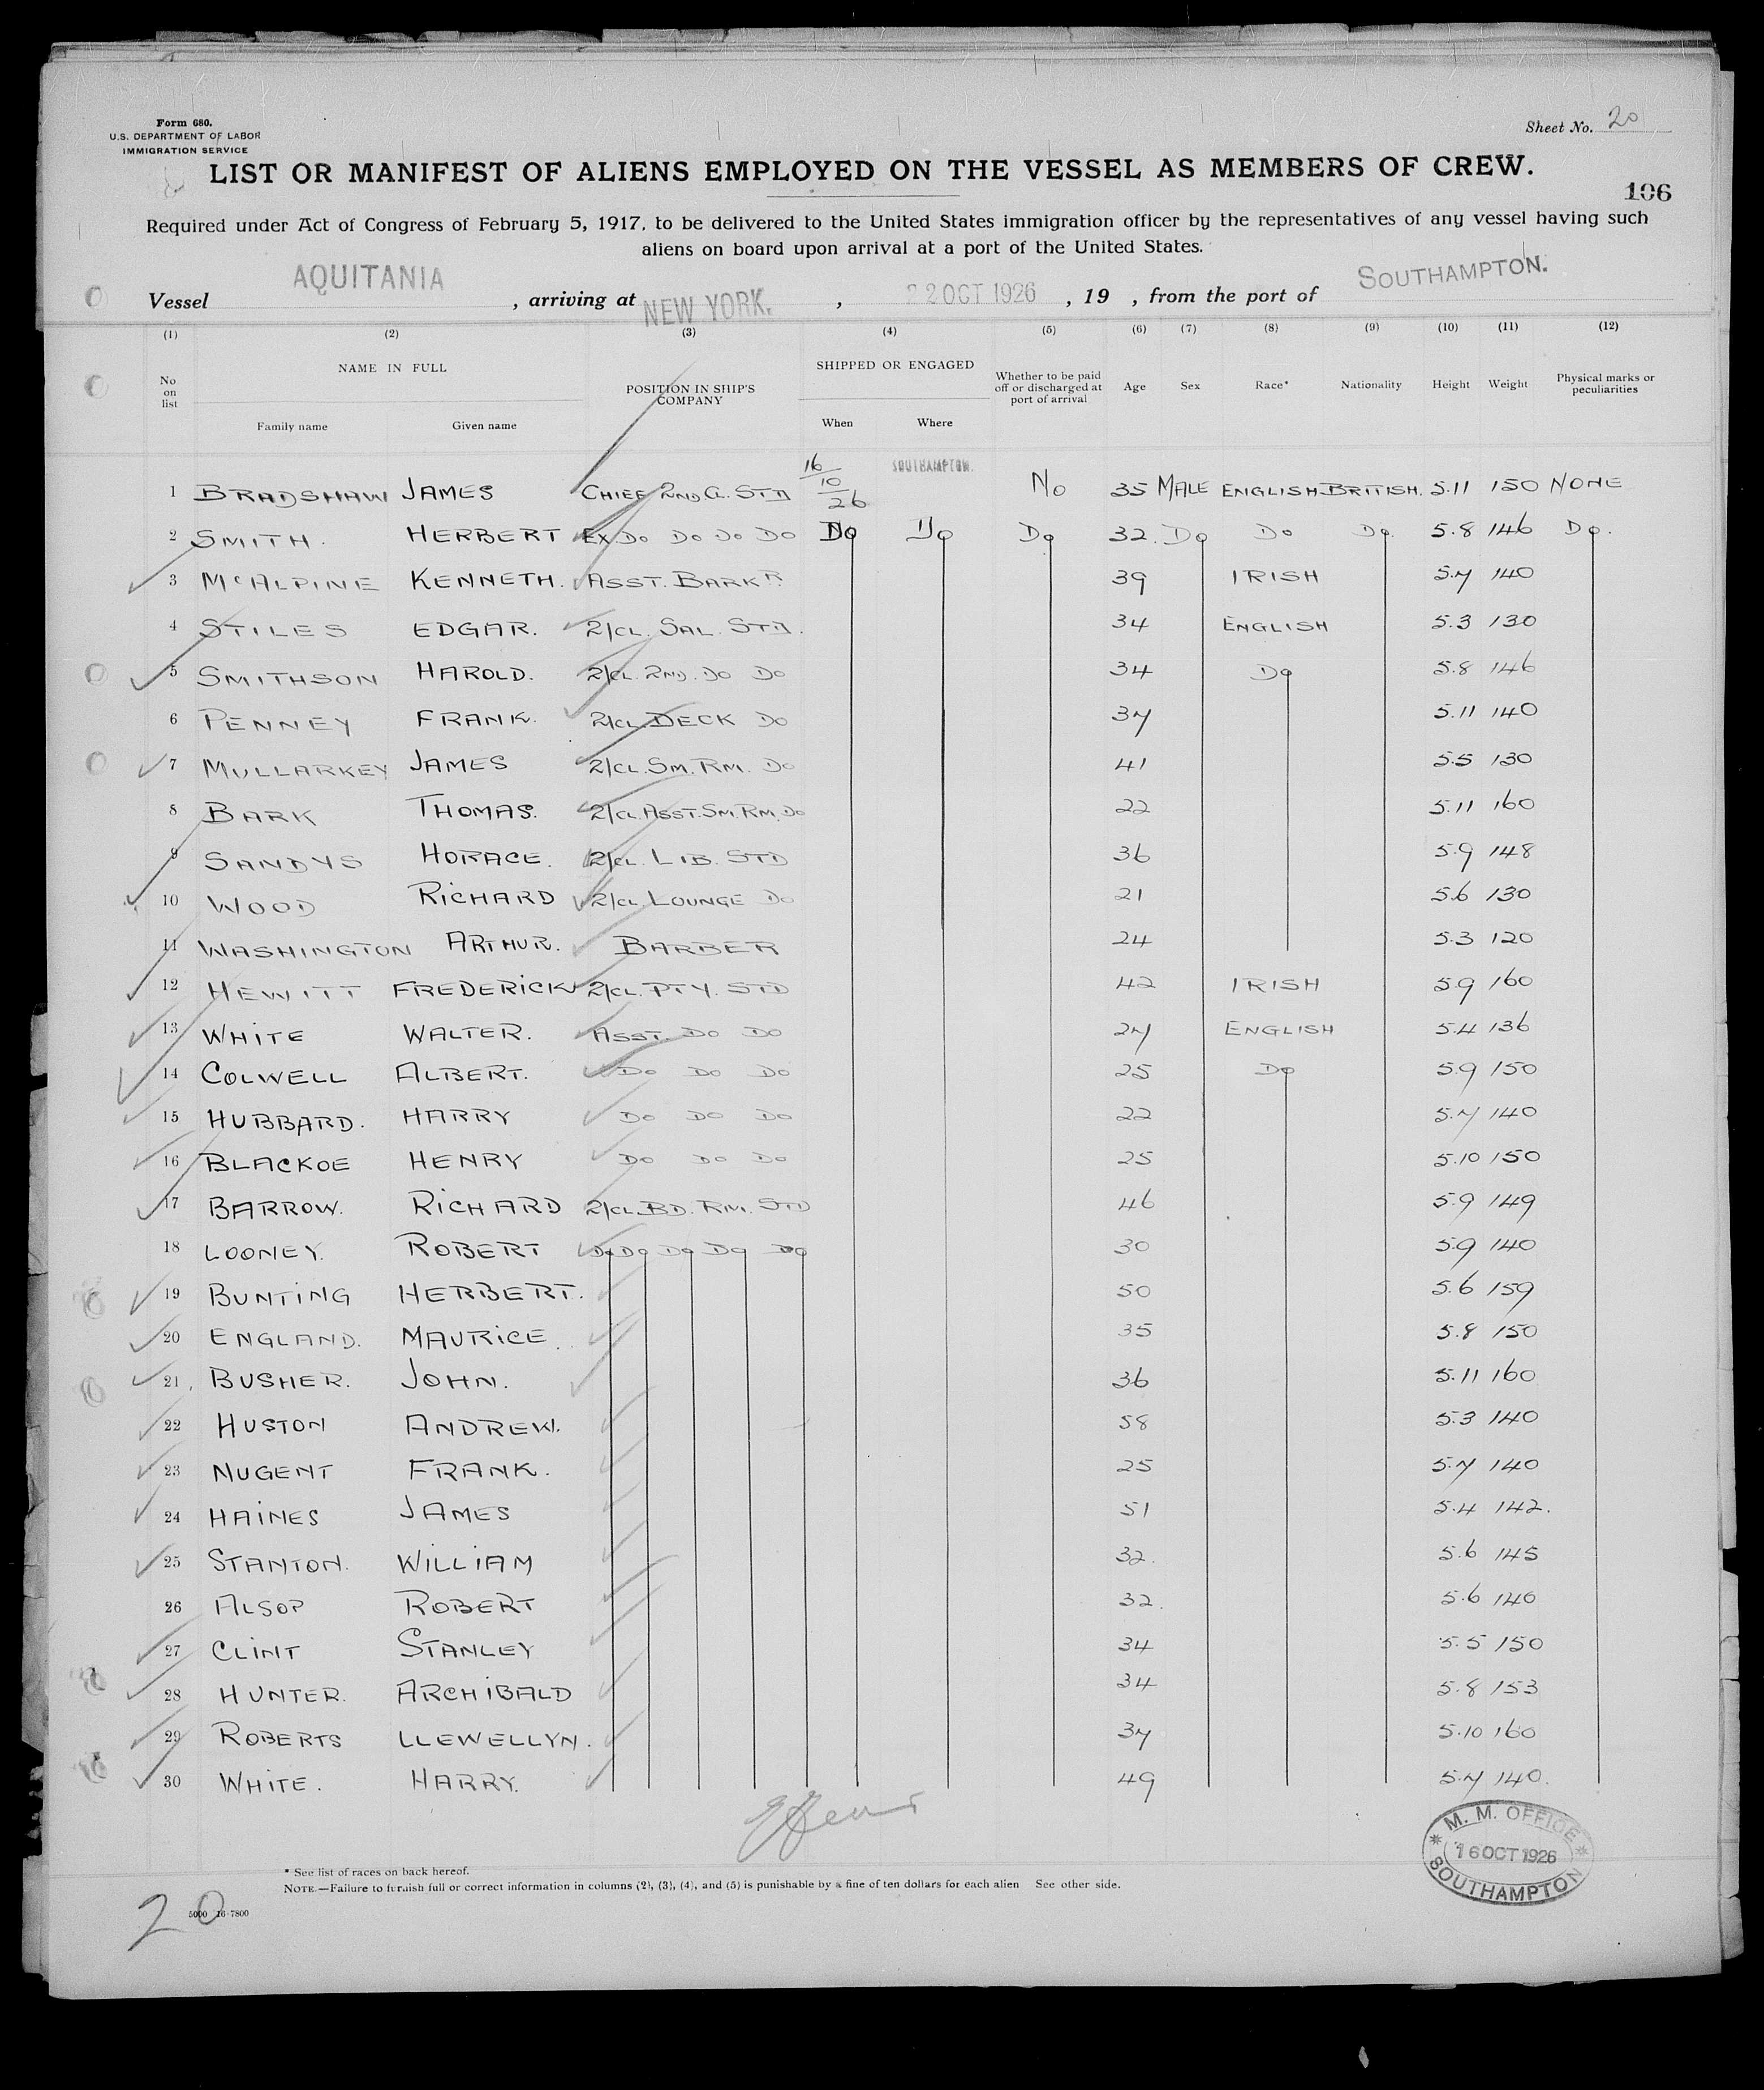 Form 680.
U.S. DEPARTMENT OF LABOR
IMMIGRATION SERVICE
Sheet No. 20
LIST OR MANIFEST OF ALIENS EMPLOYED ON THE VESSEL AS MEMBERS OF CREW.
106
Required under Act of Congress of February 5, 1917, to be delivered to the United States immigration officer by the representatives of any vessel having such
aliens on board upon arrival at a port of the United States.
Vessel AQUITANIA , arriving at NEW YORK. , 22 OCT 1926 , 19 , from the port of SOUTHAMPTON.
(1) (2) (3) (4) (5) (6) (7) (8) (9) (10) (11) (12)
No on list NAME IN FULL Family name Given name POSITION IN SHIP'S COMPANY SHIPPED OR ENGAGED When Where Whether to be paid off or discharged at port of arrival Age Sex Race* Nationality Height Weight Physical marks or peculiarities
1 BRADSHAW JAMES CHIEF 2ND CL. STD 16/10/26 SOUTHAMPTON. No 35 MALE ENGLISH BRITISH. 5.11 150 NONE
2 SMITH. HERBERT EX. DO DO DO DO DO DO DO 32. DO DO DO. 5.8 146 DO.
3 McALPINE KENNETH. ASST. BARKR 39 IRISH 5.7 140
4 STILES EDGAR. 2/CL. SAL. STD. 34 ENGLISH 5.3 130
5 SMITHSON HAROLD. 2/CL. 2ND. DO DO 34 DO 5.8 146
6 PENNEY FRANK. 2/CL. DECK DO 37 5.11 140
7 MULLARKEY JAMES 2/CL. SM. RM. DO 41 5.5 130
8 BARK THOMAS. 2/CL. ASST. SM. RM. DO 22 5.11 160
9 SANDYS HORACE. 2/CL. LIB. STD 36 5.9 148
10 WOOD RICHARD 2/CL LOUNGE DO 21 5.6 130
11 WASHINGTON ARTHUR. BARBER 24 5.3 120
12 HEWITT FREDERICK 2/CL. PTY. STD 42 IRISH 5.9 160
13 WHITE WALTER. ASST. DO DO 27 ENGLISH 5.4 136
14 COLWELL ALBERT. DO DO DO 25 DO 5.9 150
15 HUBBARD. HARRY DO DO DO 22 5.7 140
16 BLACKOE HENRY DO DO DO 25 5.10 150
17 BARROW. RICHARD 2/CL. BD. RM. STD 46 5.9 149
18 LOONEY. ROBERT DO DO DO DO DO 30 5.9 140
19 BUNTING HERBERT. 50 5.6 159
20 ENGLAND. MAURICE. 35 5.8 150
21 BUSHER. JOHN. 36 5.11 160
22 HUSTON ANDREW. 58 5.3 140
23 NUGENT FRANK. 25 5.7 140
24 HAINES JAMES 51 5.4 142.
25 STANTON. WILLIAM 32. 5.6 145
26 ALSOP ROBERT 32. 5.6 140
27 CLINT STANLEY 34 5.5 150
28 HUNTER. ARCHIBALD 34 5.8 153
29 ROBERTS LLEWELLYN. 37 5.10 160
30 WHITE. HARRY. 49 5.7 140.
M. M. OFFICE
16 OCT 1926
SOUTHAMPTON
* See list of races on back hereof.
NOTE.—Failure to furnish full or correct information in columns (2), (3), (4), and (5) is punishable by a fine of ten dollars for each alien See other side.
20
5000 16-7800